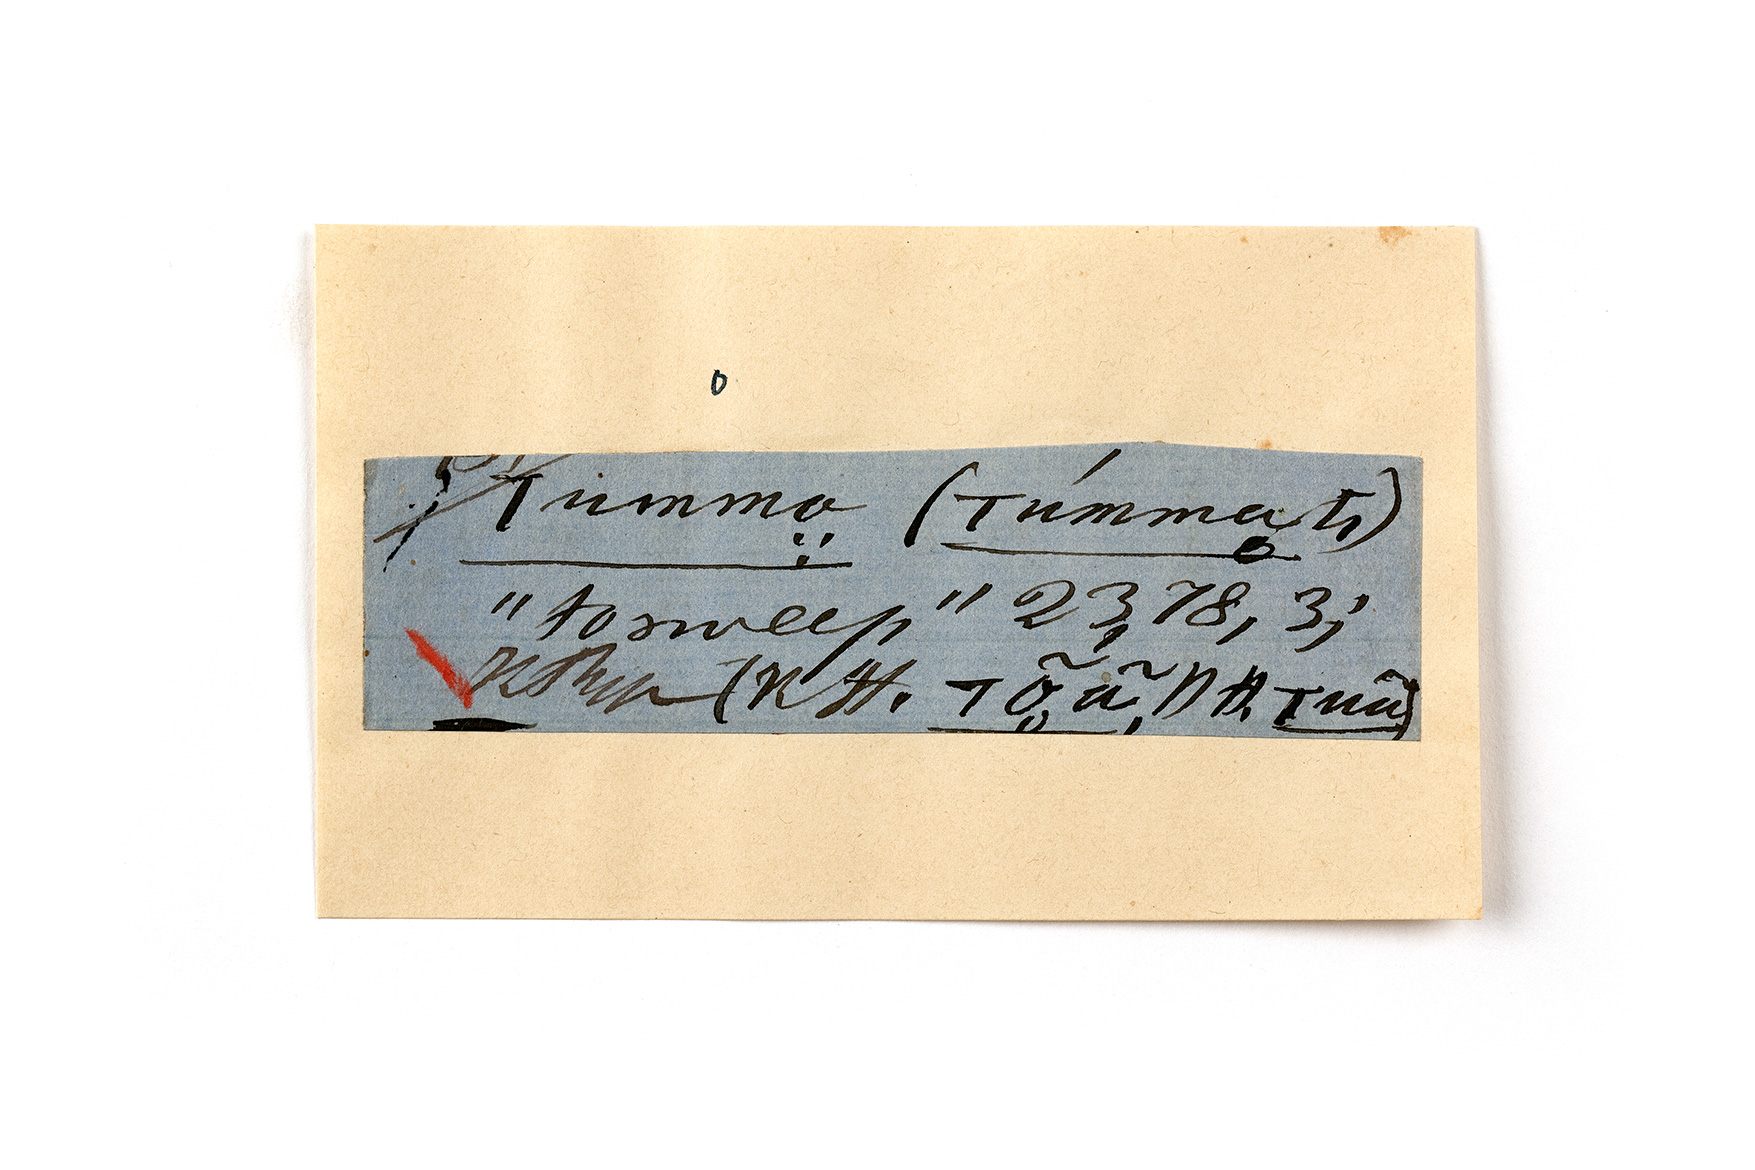 o
Tumma (Túmma ti)
"to sweep" 23, 78, 3;
(K H. Tõã, N H. Tuã)